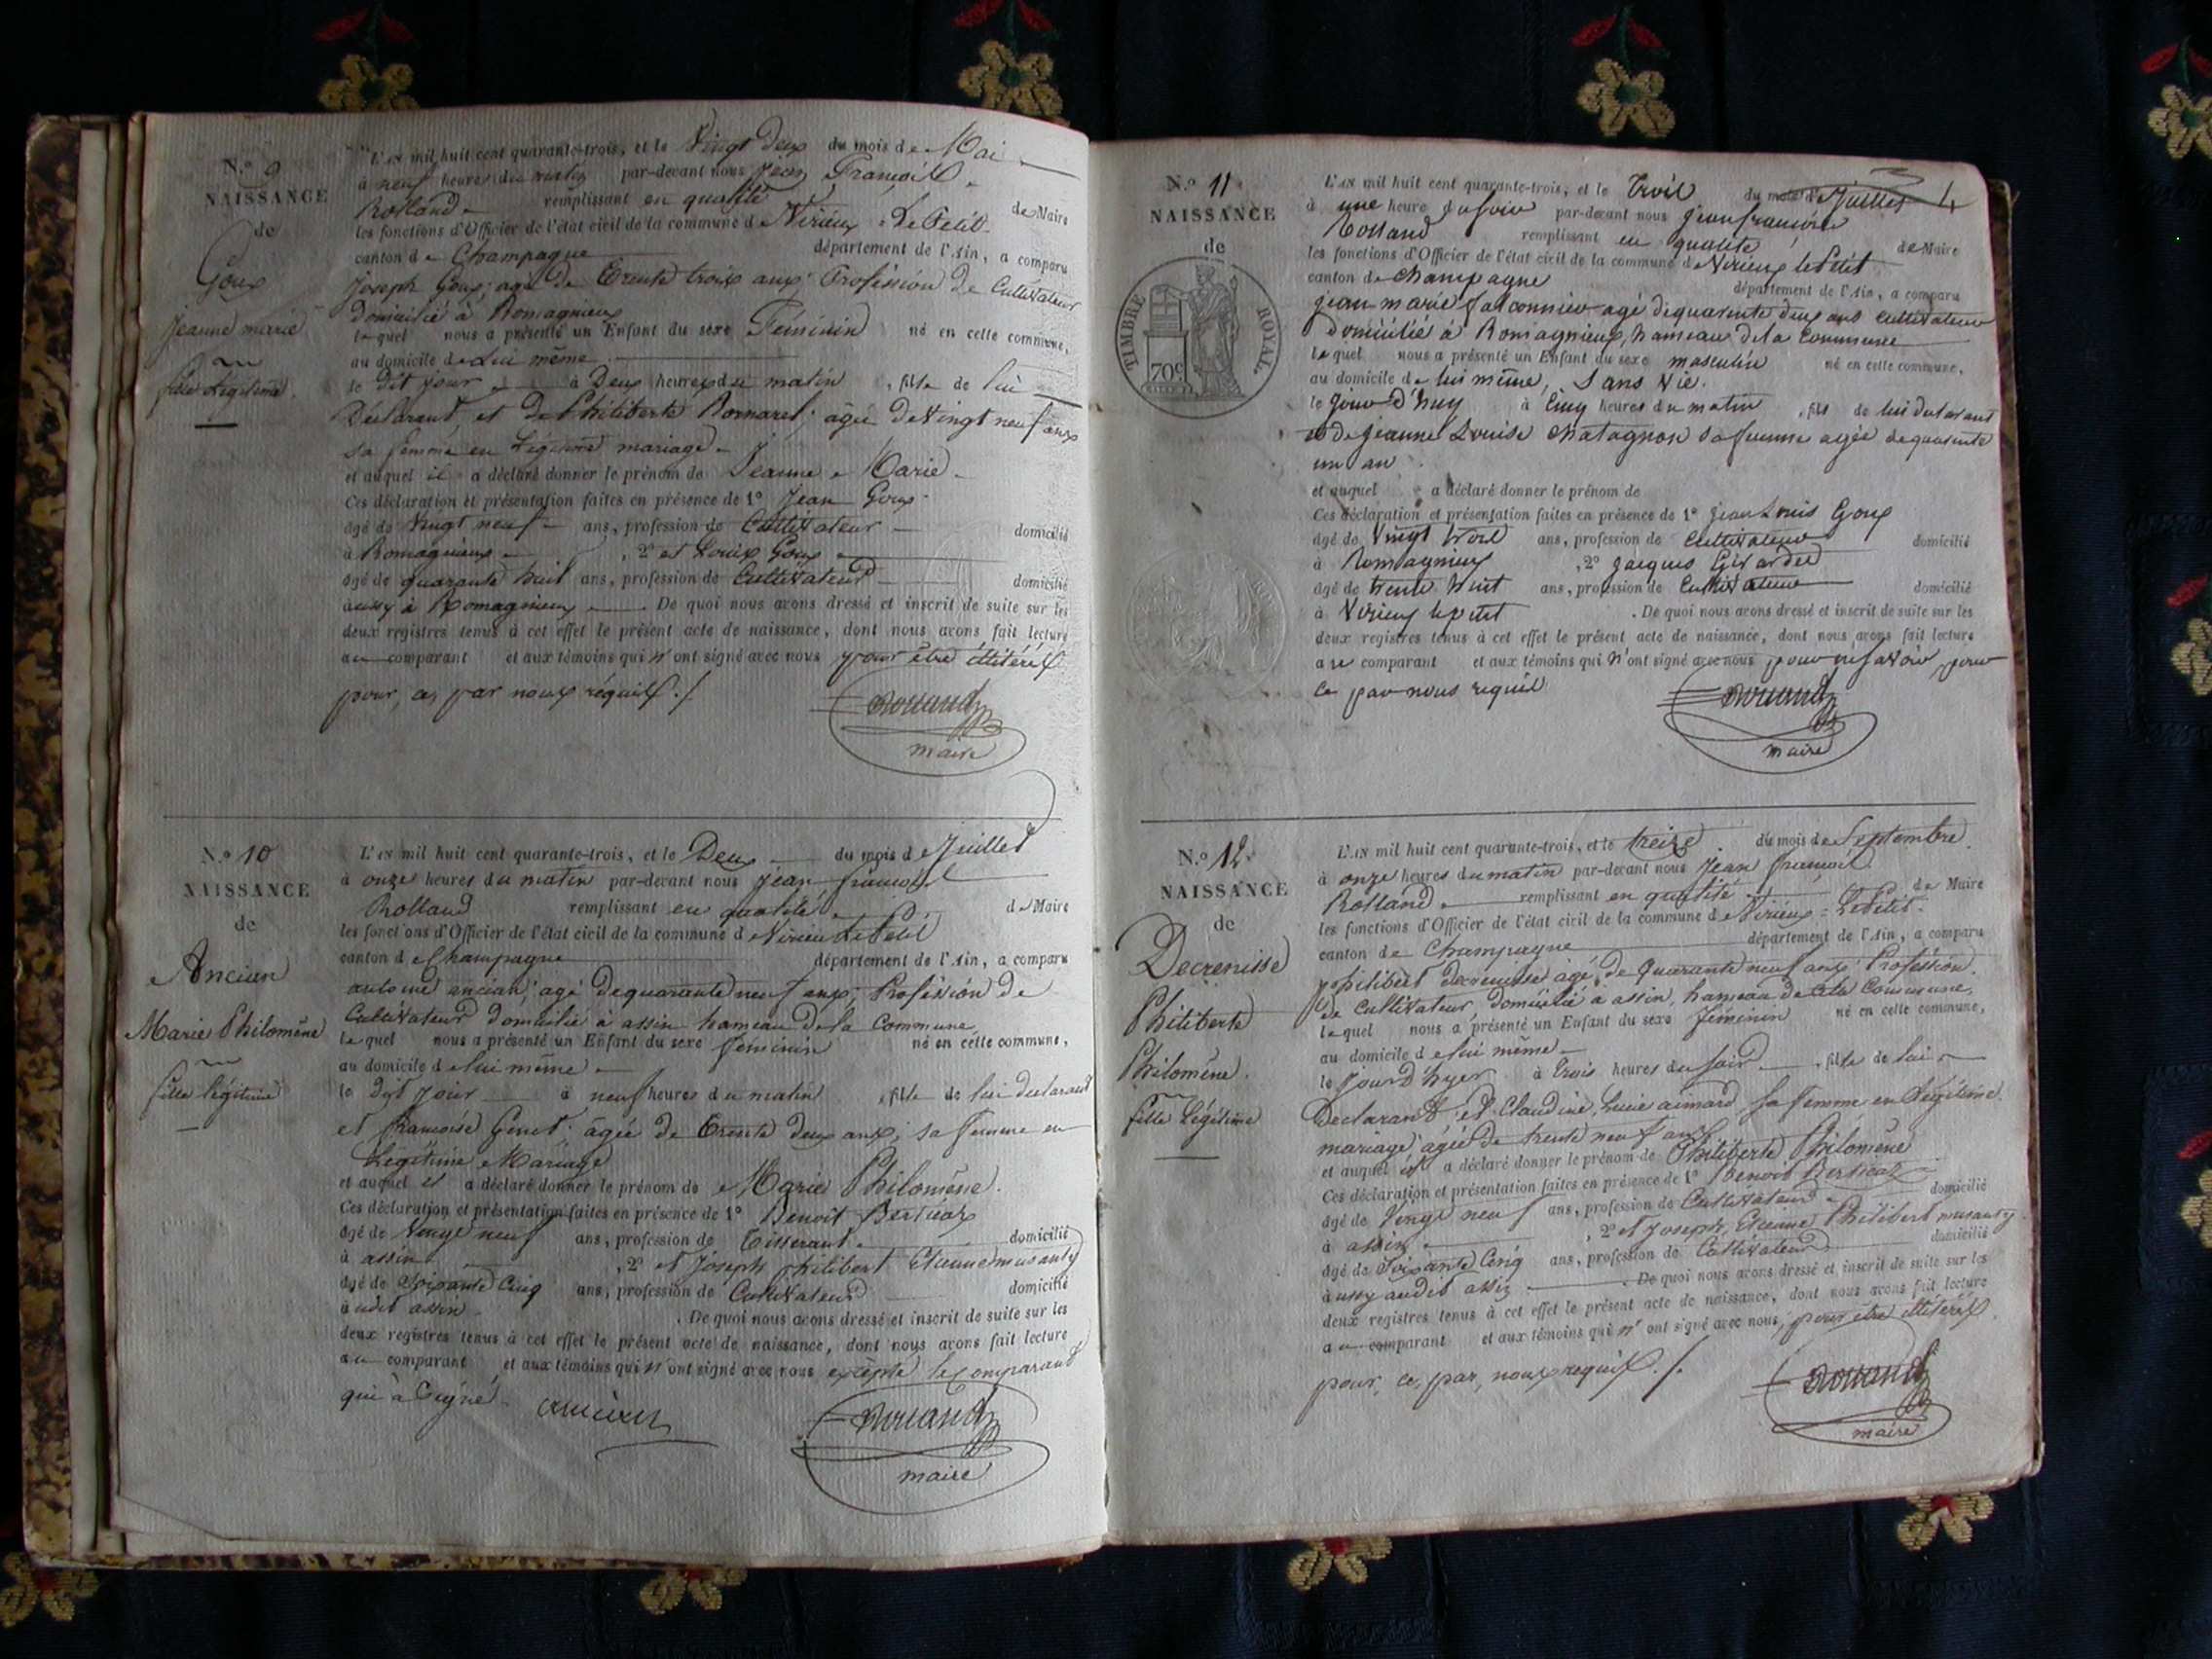 N.º 9
NAISSANCE
de
Goux
Jeanne marie
fille Légitime
L'AN mil huit cent quarante-trois, et le Vingt Deux du mois de Mai
à neuf heures du matin par-devant nous Jean François
Rolland remplissant en qualité de Maire
les fonctions d'Officier de l'état civil de la commune de Virieux = Le Petit
canton de Champagne département de l'Ain, a comparu
Joseph Goux, agé de Trente trois ans Profession de Cultivateur
Domicilié à Romagnieux
lequel nous a présenté un Enfant du sexe Féminin né en cette commune,
au domicile de Lui même
le dit jour à Deux heures du matin , fille de lui
Déclarant, et de Philiberte Bonnard, âgée de Vingt neuf ans
sa femme en Légitime mariage
et auquel il a déclaré donner le prénom de Jeanne Marie
Ces déclaration et présentation faites en présence de 1º Jean Goux
agé de Vingt neuf ans, profession de Cultivateur domicilié
à Romagnieux , 2º et Louis Goux
agé de quarante huit ans, profession de Cultivateur domicilié
aussy à Romagnieux . De quoi nous avons dressé et inscrit de suite sur les
deux registres tenus à cet effet le présent acte de naissance, dont nous avons fait lecture
au comparant et aux témoins qui n'ont signé avec nous pour être illitérés
pour, ce, par nous réquis ./.
Rolland
maire
N.º 10
NAISSANCE
de
Ancian
Marie Philomène
fille légitime
L'AN mil huit cent quarante-trois, et le Deux du mois de Juillet
à onze heures du matin par-devant nous Jean françois
Rolland remplissant en qualité de Maire
les fonctions d'Officier de l'état civil de la commune de Virieu Le Petit
canton de Champagne département de l'Ain, a comparu
antoine ancian, agé de quarante neuf ans, Profession de
Cultivateur domicilié à assin hameau de la Commune
lequel nous a présenté un Enfant du sexe féminin né en cette commune,
au domicile de lui même
le dit jour à neuf heures du matin , fille de lui declarant
et françoise Genet agée de Trente deux ans, sa femme en
Légitime Mariage
et auquel il a déclaré donner le prénom de Marie Philomène.
Ces déclaration et présentation faites en présence de 1º Benoit Berthet
agé de Vingt neuf ans, profession de Tisserant domicilié
à assin , 2º et Joseph philibert Etienne musanty
agé de Soixante Cinq ans, profession de Cultivateur domicilié
audit assin . De quoi nous avons dressé et inscrit de suite sur les
deux registres tenus à cet effet le présent acte de naissance, dont nous avons fait lecture
au comparant et aux témoins qui n'ont signé avec nous excepté le Comparant
qui à Signé
ancian
Rolland
maire
4
N.º 11
NAISSANCE
de
TIMBRE ROYAL
70c
L'AN mil huit cent quarante-trois, et le Trois du mois de Juillet
à une heure du soir par-devant nous jean françois
Rolland remplissant en qualité de Maire
les fonctions d'Officier de l'état civil de la commune de Virieux le Petit
canton de champagne département de l'Ain, a comparu
jean marie falconnier agé de quarente deux ans cultivateur
domicilié à Romagnieux, hameau de la Commune
lequel nous a présenté un Enfant du sexe masculin né en cette commune,
au domicile de lui même, Sans Vie.
le jour d'huy à Cinq heures du matin , fils de lui declarant
et de jeanne Louise Chatagnon Sa femme agée de quarente
un an
et auquel a déclaré donner le prénom de
Ces déclaration et présentation faites en présence de 1º jean Louis Goux
agé de Vingt trois ans, profession de Cultivateur domicilié
à Romagnieux , 2º jacques Girardet
agé de trente huit ans, profession de Cultivateur domicilié
à Virieux le petit . De quoi nous avons dressé et inscrit de suite sur les
deux registres tenus à cet effet le présent acte de naissance, dont nous avons fait lecture
au comparant et aux témoins qui n'ont signé avec nous pour ne savoir pour
ce par nous requis
Rolland
maire
N.º 12
NAISSANCE
de
Decrenisse
Philiberte
Philomène.
fille Légitime
L'AN mil huit cent quarante-trois, et le treize du mois de Septembre.
à onze heures du matin par-devant nous Jean françois
Rolland remplissant en qualité de Maire
les fonctions d'Officier de l'état civil de la commune de Virieux = Le Petit.
canton de Champagne département de l'Ain, a comparu
philibert decrenisse agé de Quarante neuf ans Profession.
de Cultivateur domicilié a assin, hameau de cette Commune,
lequel nous a présenté un Enfant du sexe féminin né en cette commune,
au domicile de lui même
le jour D'hyer à trois heures du soir , fille de lui
Declarant et Claudine Lucie aimard sa femme en Légitime
mariage agée de trente neuf ans
et auquel il a déclaré donner le prénom de Philiberte Philomène
Ces déclaration et présentation faites en présence de 1º Benoit Berthet
agé de Vingt neuf ans, profession de Cultivateur domicilié
à assin , 2º et Joseph, Etienne Philibert musanty
agé de Soixante Cinq ans, profession de Cultivateur domicilié
aussy audit assin . De quoi nous avons dressé et inscrit de suite sur les
deux registres tenus à cet effet le présent acte de naissance, dont nous avons fait lecture
au comparant et aux témoins qui n'ont signé avec nous, pour être illitérés
pour, ce, par, nous requis ./.
Rolland
maire